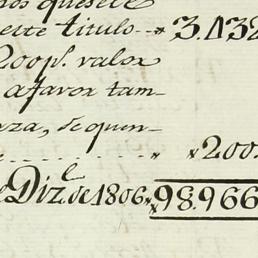 os quesele
este titulo-- " 3.432
200p.s valor
a favor tam-
za, se quen-
" " 200
Diz.e de 1806 " 98.966